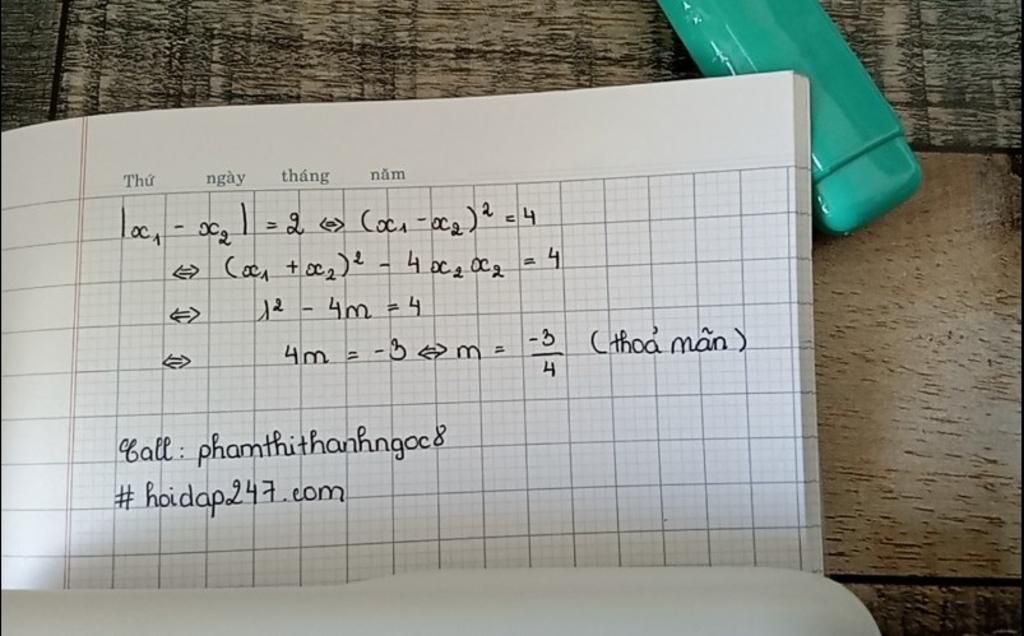 Thứ ngày tháng năm
|x₁ - x₂| = 2 ⇔ (x₁ - x₂)² = 4
⇔ (x₁ + x₂)² - 4x₂x₂ = 4
⇔ 1² - 4m = 4
⇔ 4m = -3 ⇔ m = -3/4 (thoả mãn)
Call: phamthithanhngoc8
# hoidap247.com